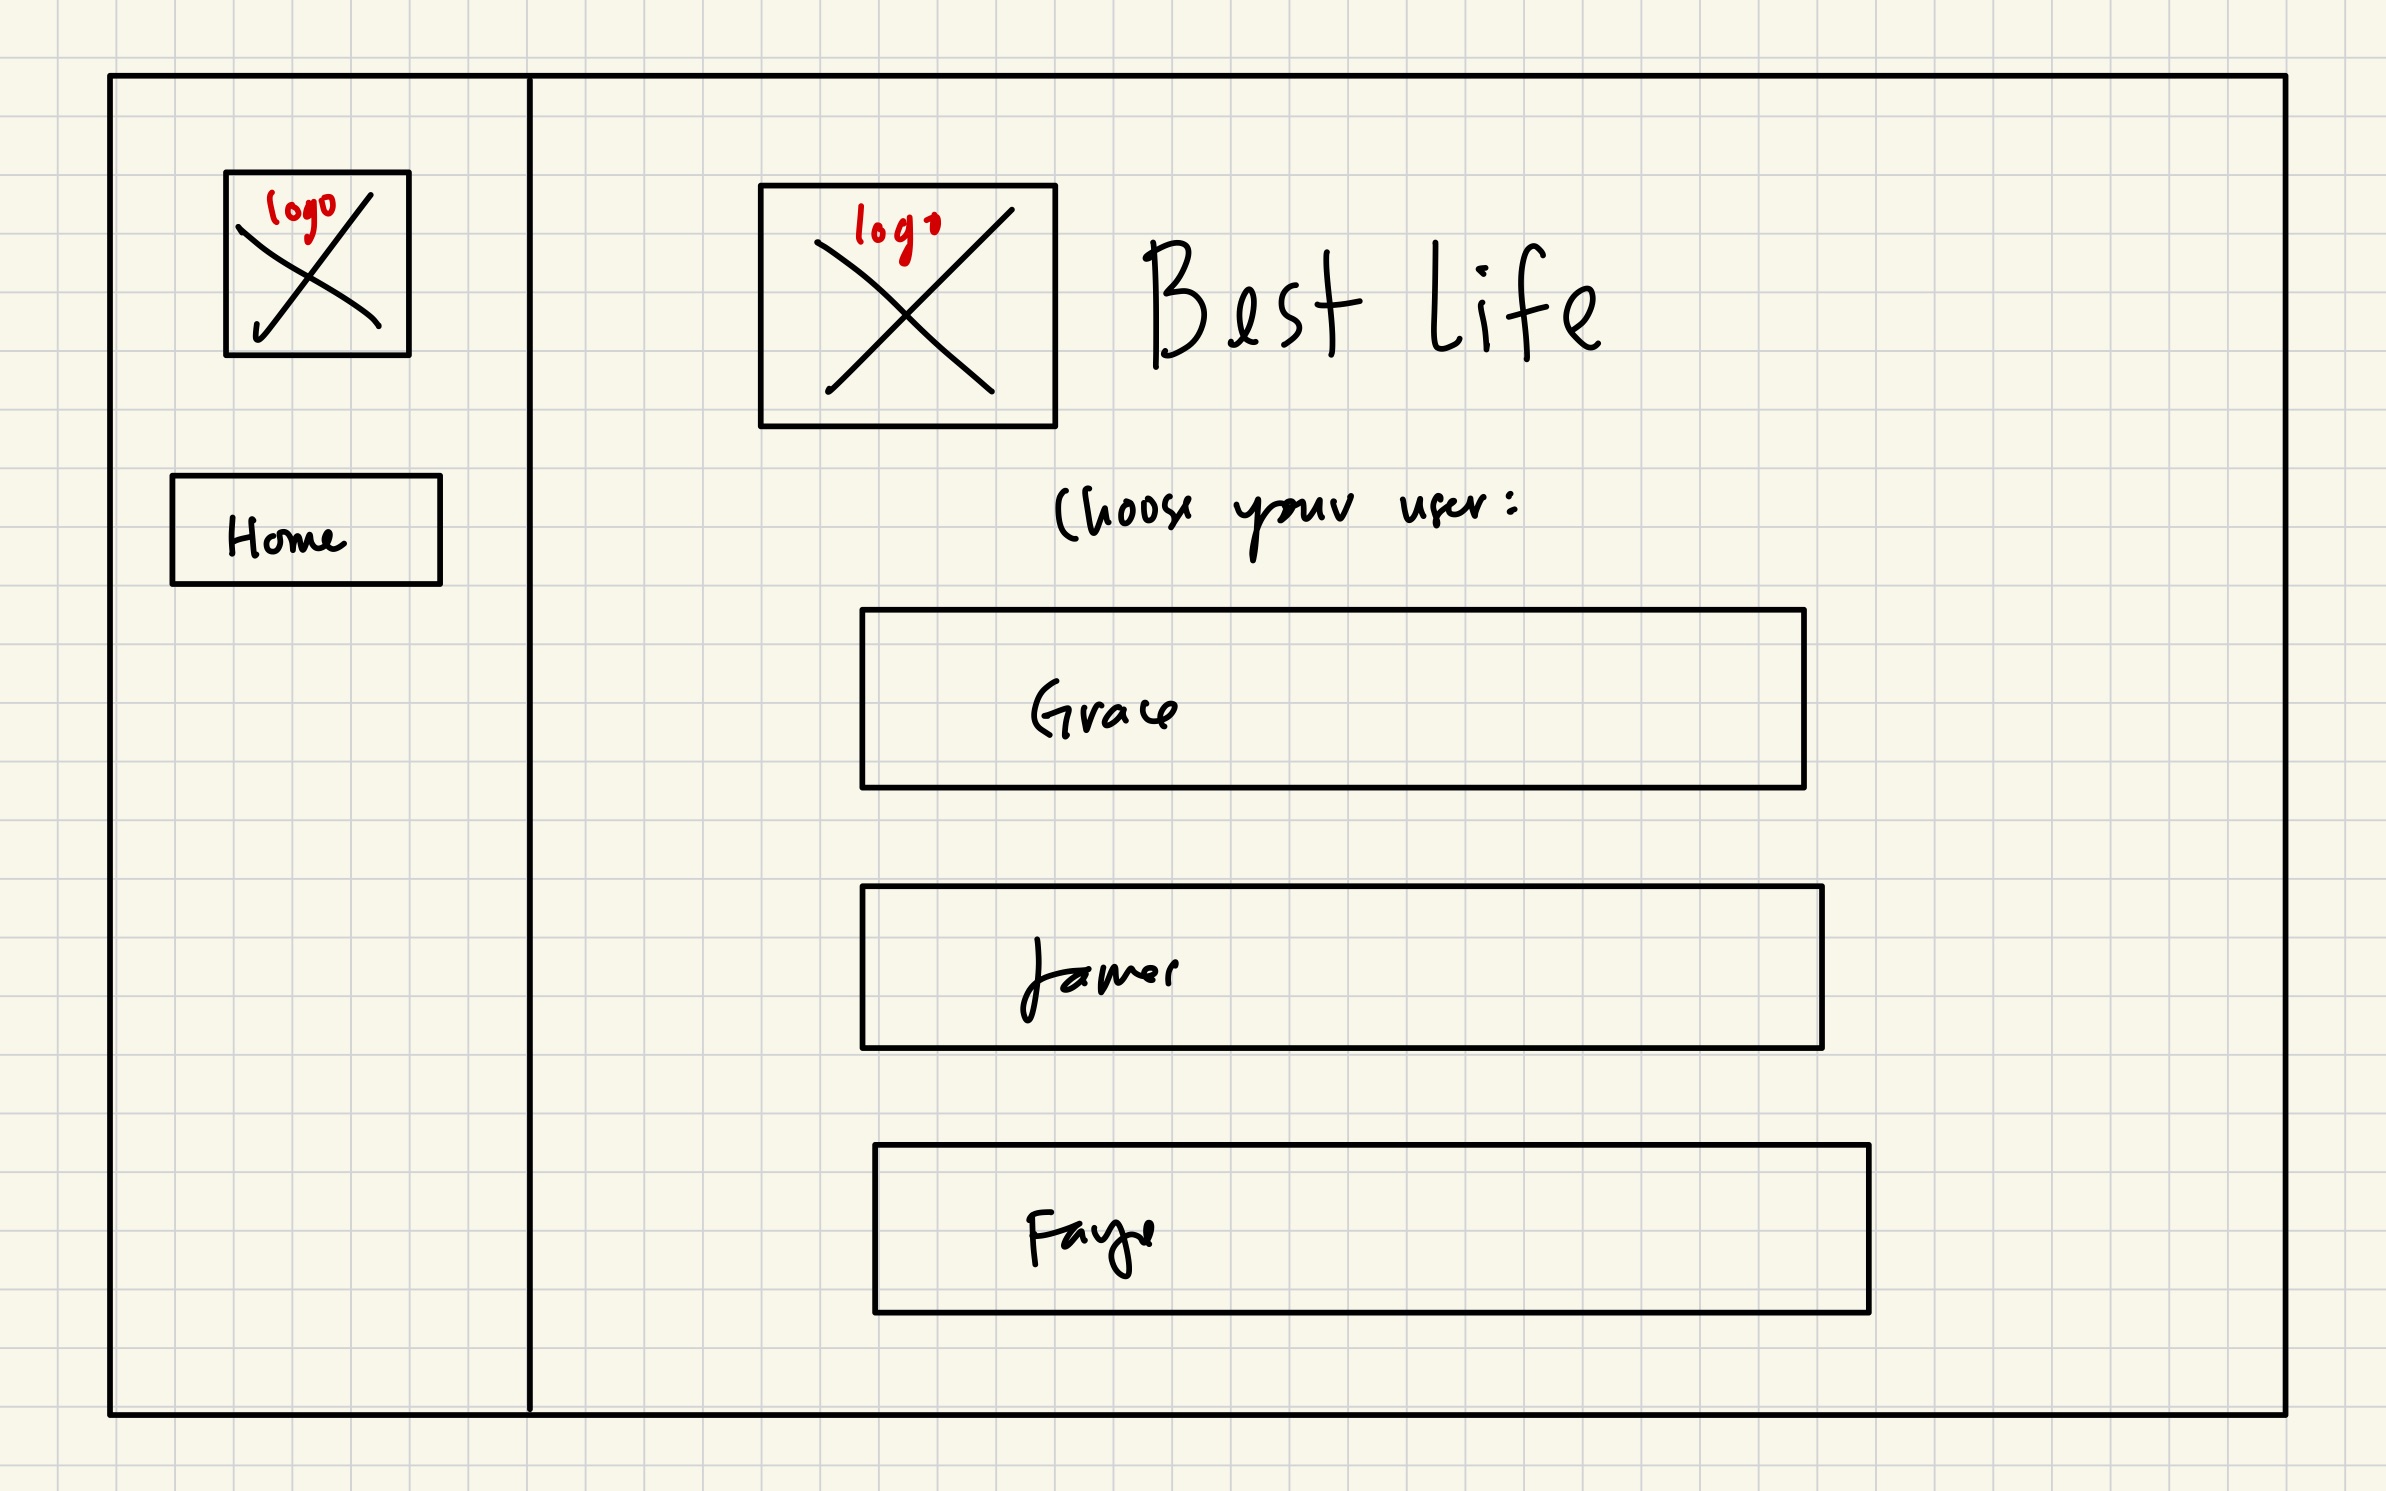 logo
Home
logo
Best Life
Choose your user:
Grace
James
Faye